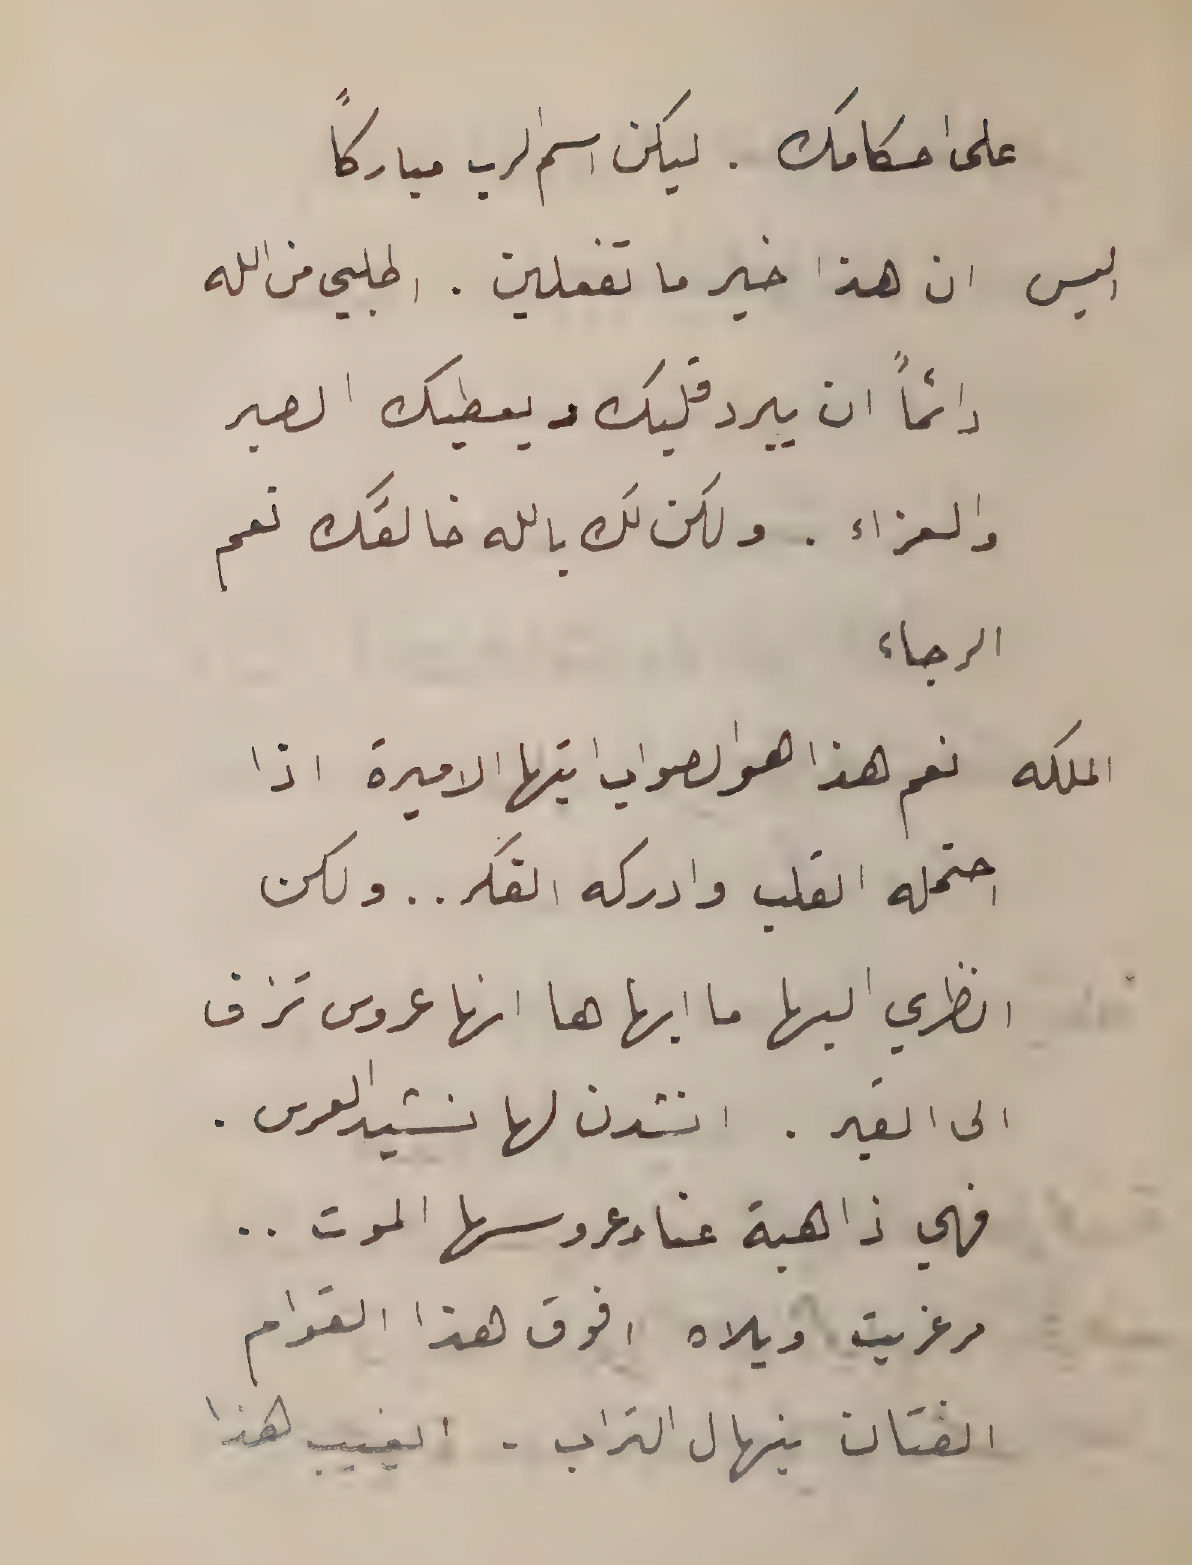 على احكامك . ليكن اسم الرب مباركاً
اليس ان هذا خير ما تفعلين . اطلبي من الله
دائماً ان يبرد قلبك ويعطيك الصبر
والعزاء . ولكن لك بالله خالقك نعم
الرجاء
الملكه نعم هذا هو الصواب ايتها الاميرة اذا
احتمله القلب وادركه الفكر .. ولكن
انظري اليها ما ابهاها انها عروس تزف
الى القبر . انشدن لها نشيد العرس .
فهي ذاهبة عنا وعروسها الموت ..
مرغريت ويلاه افوق هذا القوام
الفتان ينهال التراب . ايغيب هذا